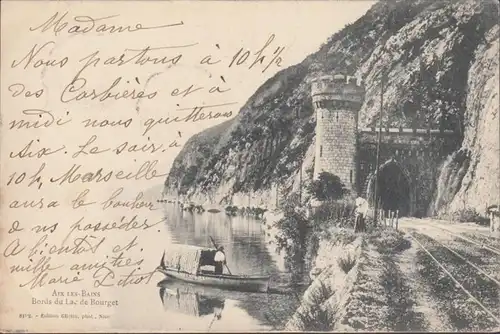 Madame
Nous partons à 10h ½
des Corbières et à
midi nous quitterons
Aix. Le soir, à
10h, Marseille
aura le bonheur
de nous posséder
A bientôt et
mille amitiés
Marie
AIX-LES-BAINS
Bords du Lac de Bourget
Edition Giletta, phot., Nice